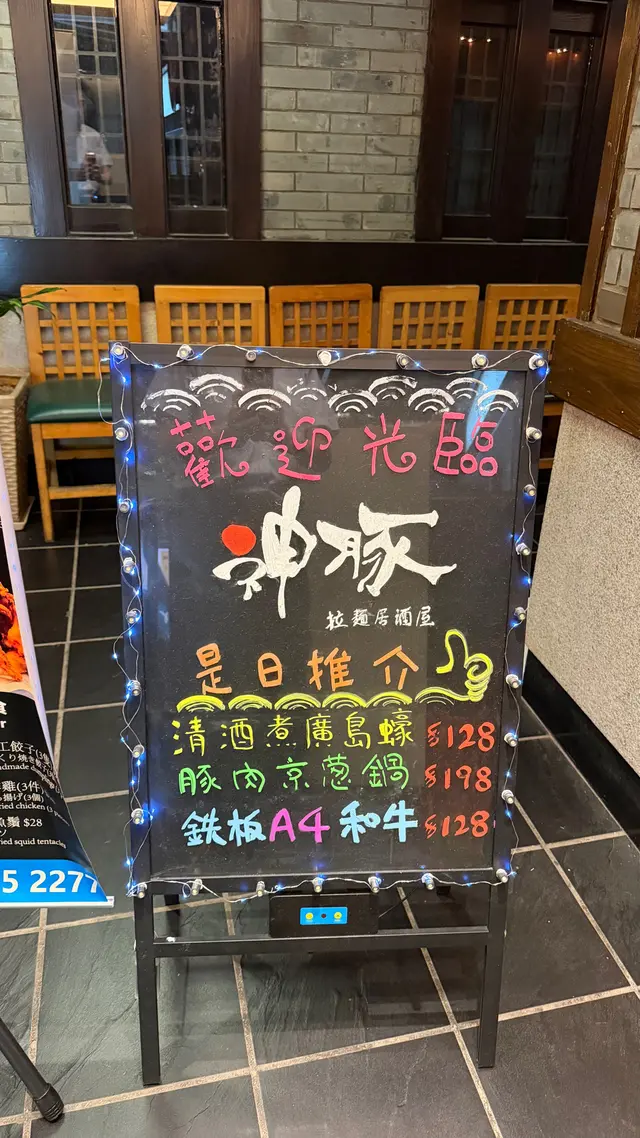 歡迎光臨
神豚
拉麵居酒屋
是日推介
清酒煮廣島蠔 $128
豚肉京蔥鍋 $198
鉄板A4和牛 $128
餃子(3個)
dmade
雞(3件)
揚げ(3個)
ried chicken (3
魚鬚 $28
ried squid tentacles
5 2277